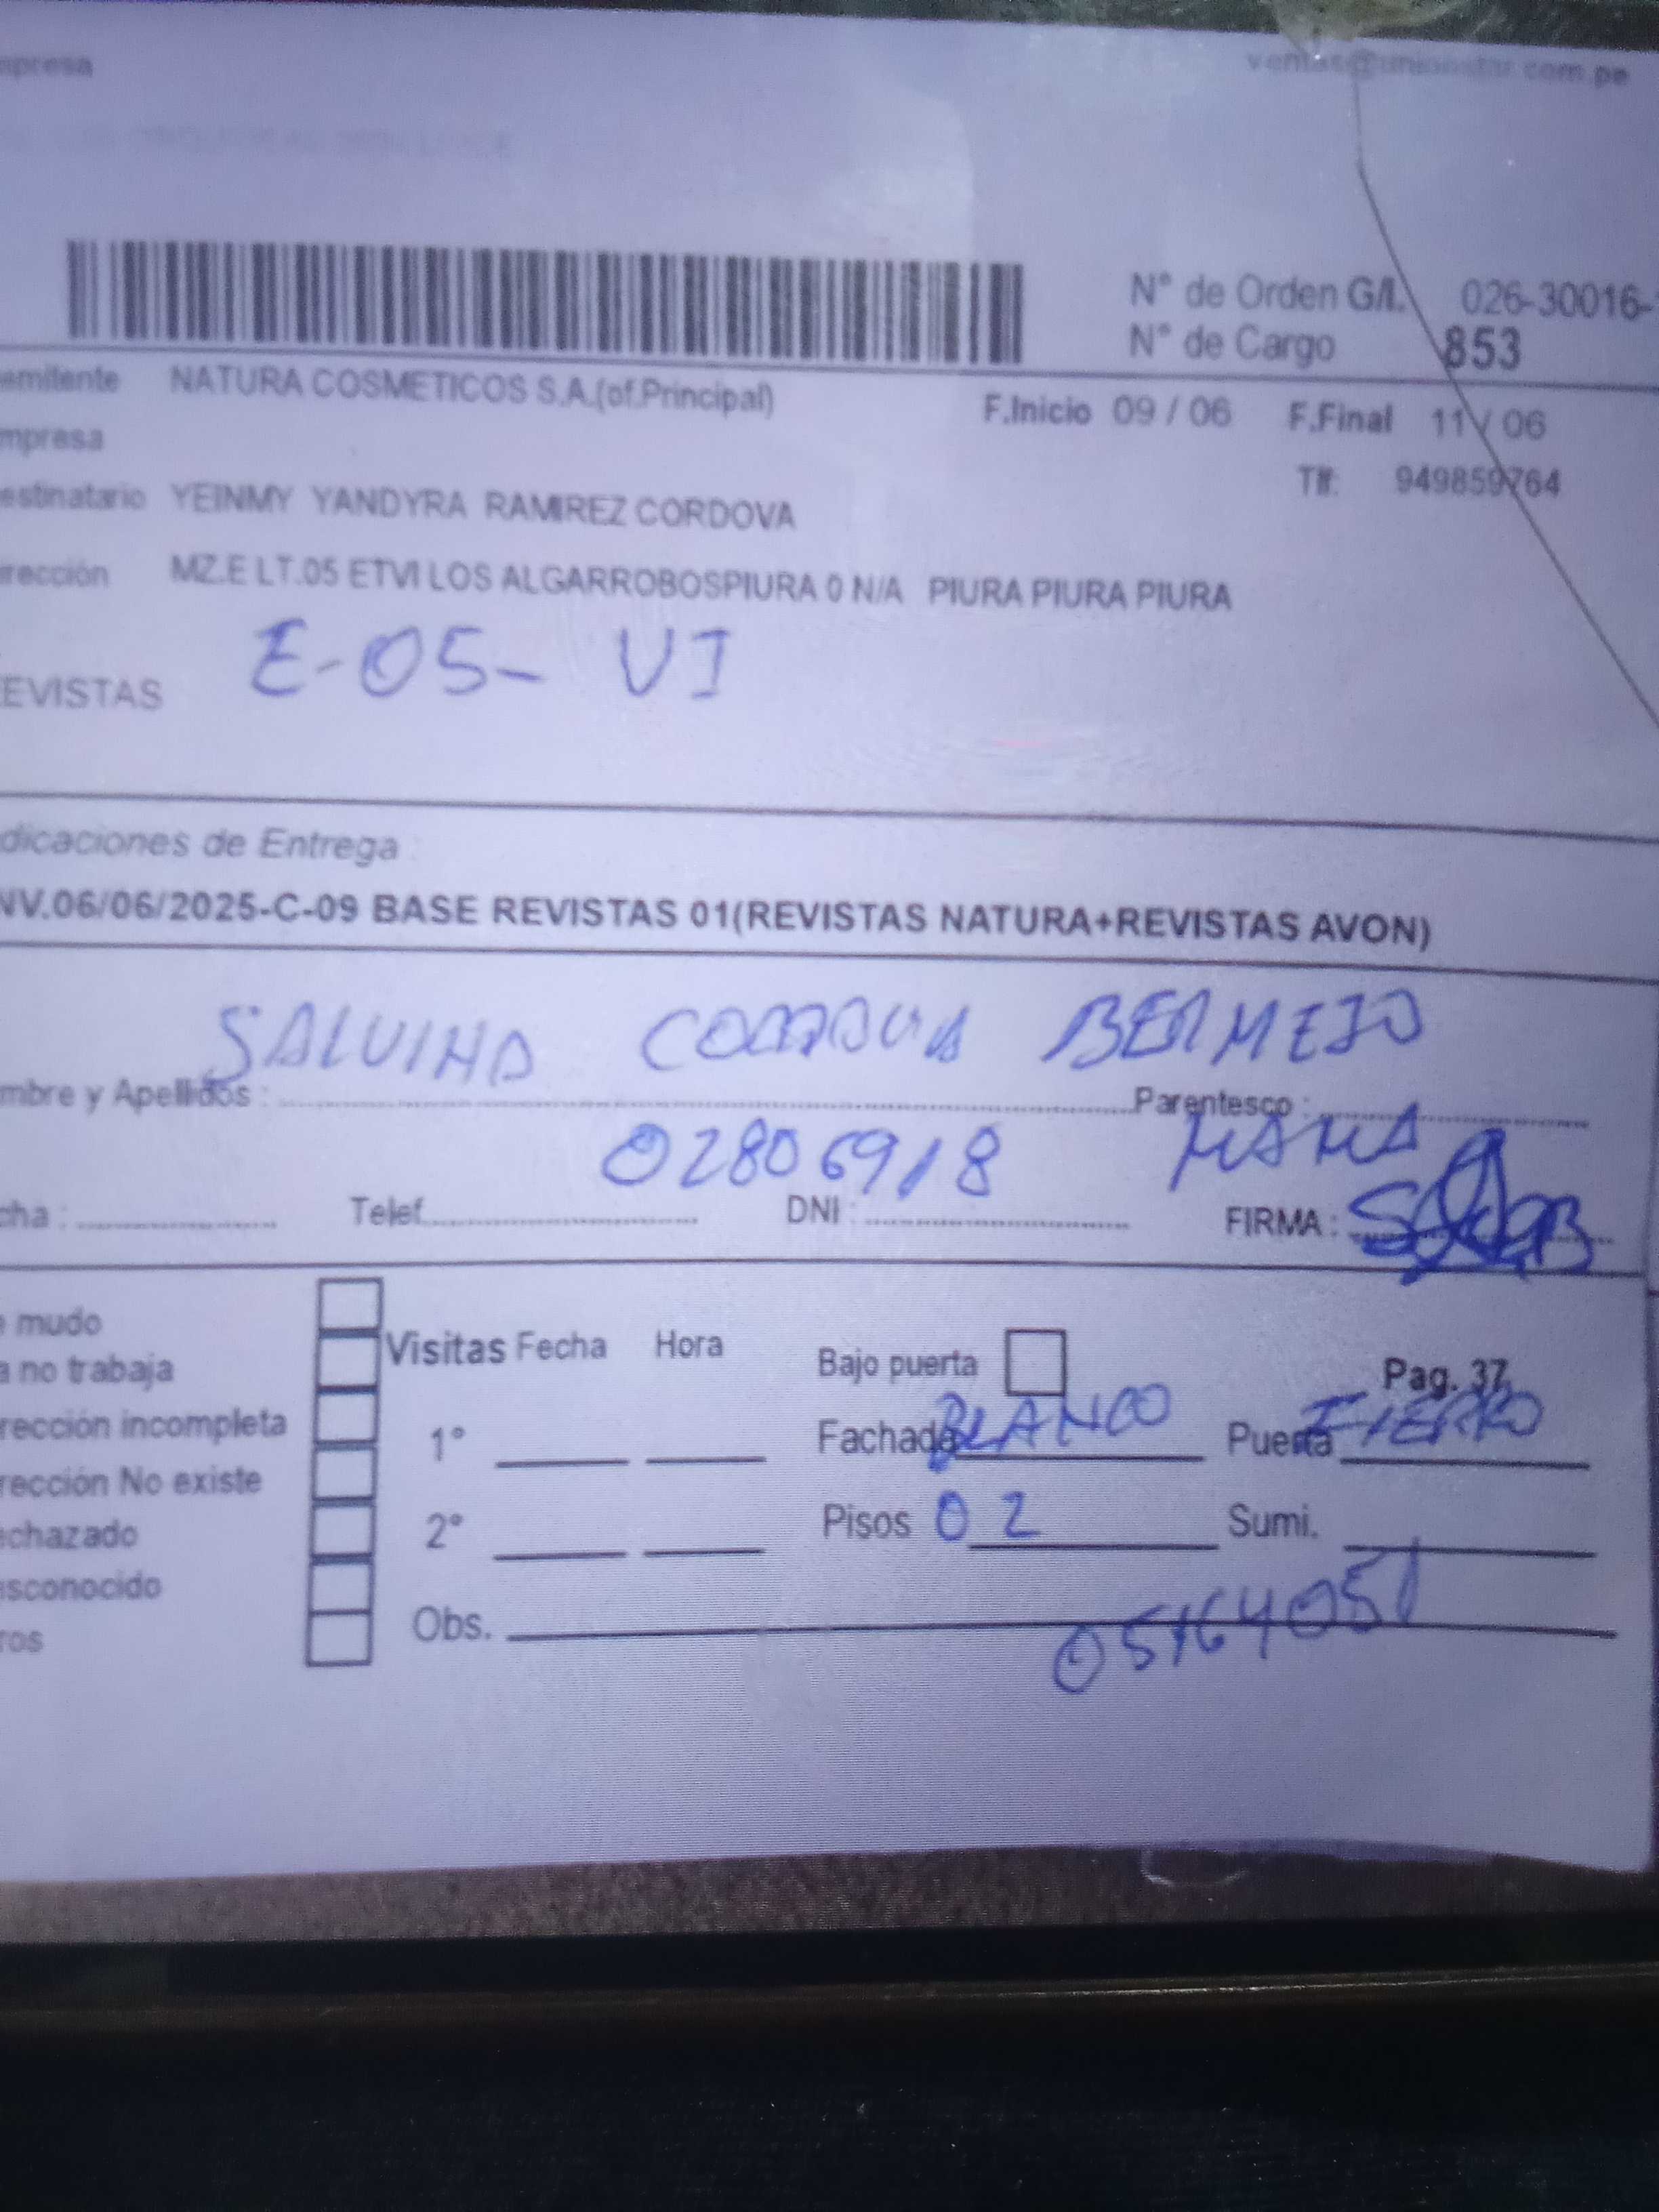 mpresa
ventas@unionstar.com.pe
N° de Orden G/I. 026-30016-
N° de Cargo 853
emitente NATURA COSMETICOS S.A.(of.Principal)
F.Inicio 09 / 06 F.Final 11 / 06
mpresa
Tlf: 949859764
estinatario YEINMY YANDYRA RAMIREZ CORDOVA
rección MZ.E LT.05 ETVI LOS ALGARROBOSPIURA 0 N/A PIURA PIURA PIURA
E-05- VI
EVISTAS
dicaciones de Entrega
NV.06/06/2025-C-09 BASE REVISTAS 01(REVISTAS NATURA+REVISTAS AVON)
SALVINA CORDOVA BERMEJO
mbre y Apellidos : Parentesco :
02806918 MAMA
cha : Telef. DNI : FIRMA :
e mudo
a no trabaja
rección incompleta
rección No existe
echazado
esconocido
ros
Visitas Fecha Hora
1°
2°
Obs.
Bajo puerta Pag. 37
Fachada BLANCO Puerta FIERRO
Pisos 02 Sumi.
05164051